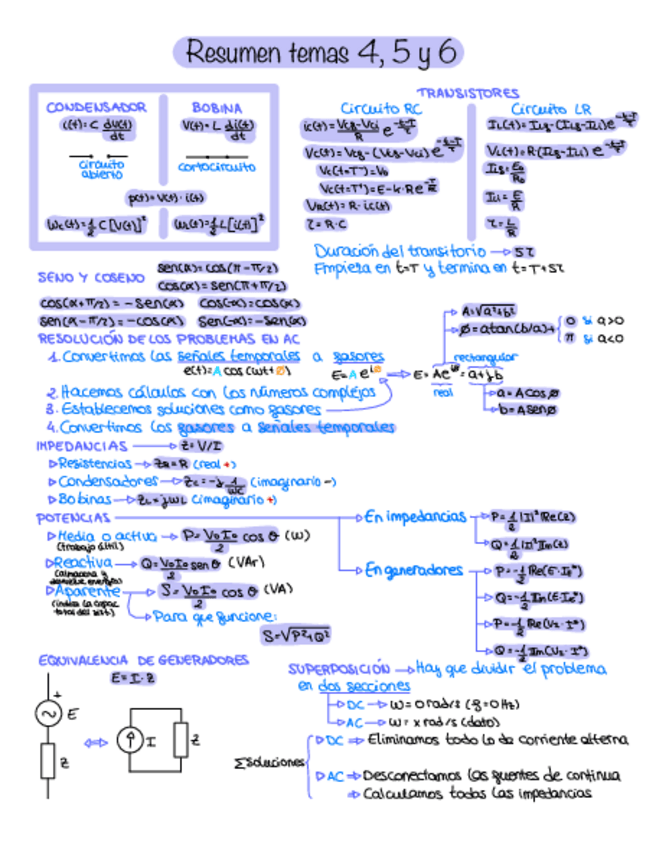 Resumen temas 4, 5 y 6
CONDENSADOR
i(t) = C dv(t)/dt
circuito abierto
BOBINA
V(t) = L di(t)/dt
cortocircuito
p(t) = v(t) · i(t)
Wc(t) = 1/2 C [V(t)]²
WL(t) = 1/2 L [i(t)]²
TRANSISTORES
Circuito RC
Vc(t) = Vcg - (Vcg - Vci) e
Vc(t=T⁻) = V₀
VR(t) = R · ic(t)
τ = R · C
Circuito LR
τ = L/R
Duración del transitorio → 5τ
Empieza en t=T y termina en t=T+5τ
SENO Y COSENO
sen(α) = cos(π - π/2)
cos(α) = sen(π + π/2)
cos(α + π/2) = - sen(α) cos(-α) = cos(α)
sen(α - π/2) = - cos(α) sen(-α) = -sen(α)
RESOLUCIÓN DE LOS PROBLEMAS EN AC
1. Convertimos las señales temporales a fasores
e(t) = A cos(ωt + Ø)
E = A e^jØ → E = Ae^jØ = a + jb
real
rectangular
A = √a²+b²
Ø = atan(b/a) +
0 si a>0
π si a<0
a = A cos Ø
b = A sen Ø
2. Hacemos cálculos con los números complejos
3. Establecemos soluciones como fasores
4. Convertimos los fasores a señales temporales
IMPEDANCIAS → Z = V/I
Resistencias → ZR = R (real +)
Condensadores → Zc = -j 1/ωC (imaginario -)
Bobinas → ZL = jωL (imaginario +)
POTENCIAS
Media o activa → P = V₀I₀/2 cos θ (W)
(trabajo útil)
Reactiva → Q = V₀I₀ sen θ/2 (VAr)
(almacena y devuelve energía)
Aparente → S = V₀I₀/2 cos θ (VA)
Para que funcione:
S = √P²+Q²
En impedancias
P = 1/2 |I|² Re(Z)
Q = 1/2 |I|² Im(Z)
En generadores
EQUIVALENCIA DE GENERADORES
E = I · Z
E
Z
I
Z
SUPERPOSICIÓN → Hay que dividir el problema
en dos secciones
DC → ω = 0 rad/s (f = 0 Hz)
AC → ω = x rad/s (dato)
Σ Soluciones
DC ⇒ Eliminamos todo lo de corriente alterna
AC ⇒ Desconectamos las fuentes de continua
⇒ Calculamos todas las impedancias